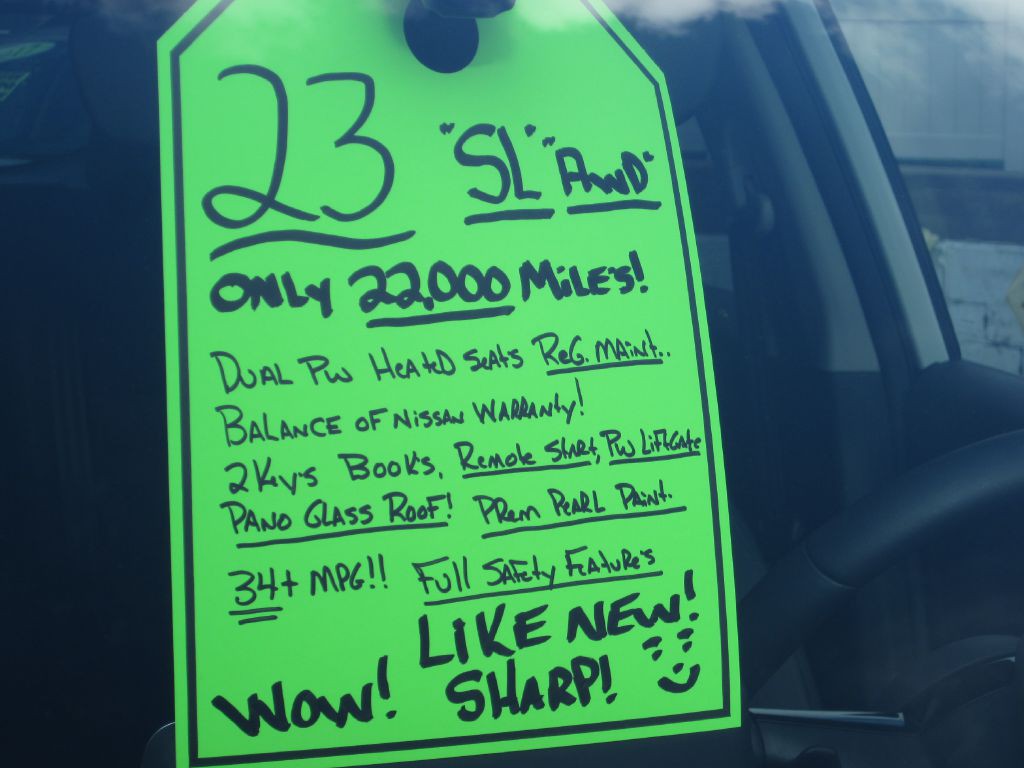 23 "SL" "AWD"
ONLY 22,000 MILE'S!
DUAL PW HEATED SEATS REG. MAINT..
BALANCE OF NISSAN WARRANTY!
2 KEY'S BOOK'S, REMOTE START, PW LIFTGATE
PANO GLASS ROOF! PREM PEARL PAINT.
34+ MPG!! FULL SAFETY FEATURE'S
LIKE NEW!
WOW! SHARP!